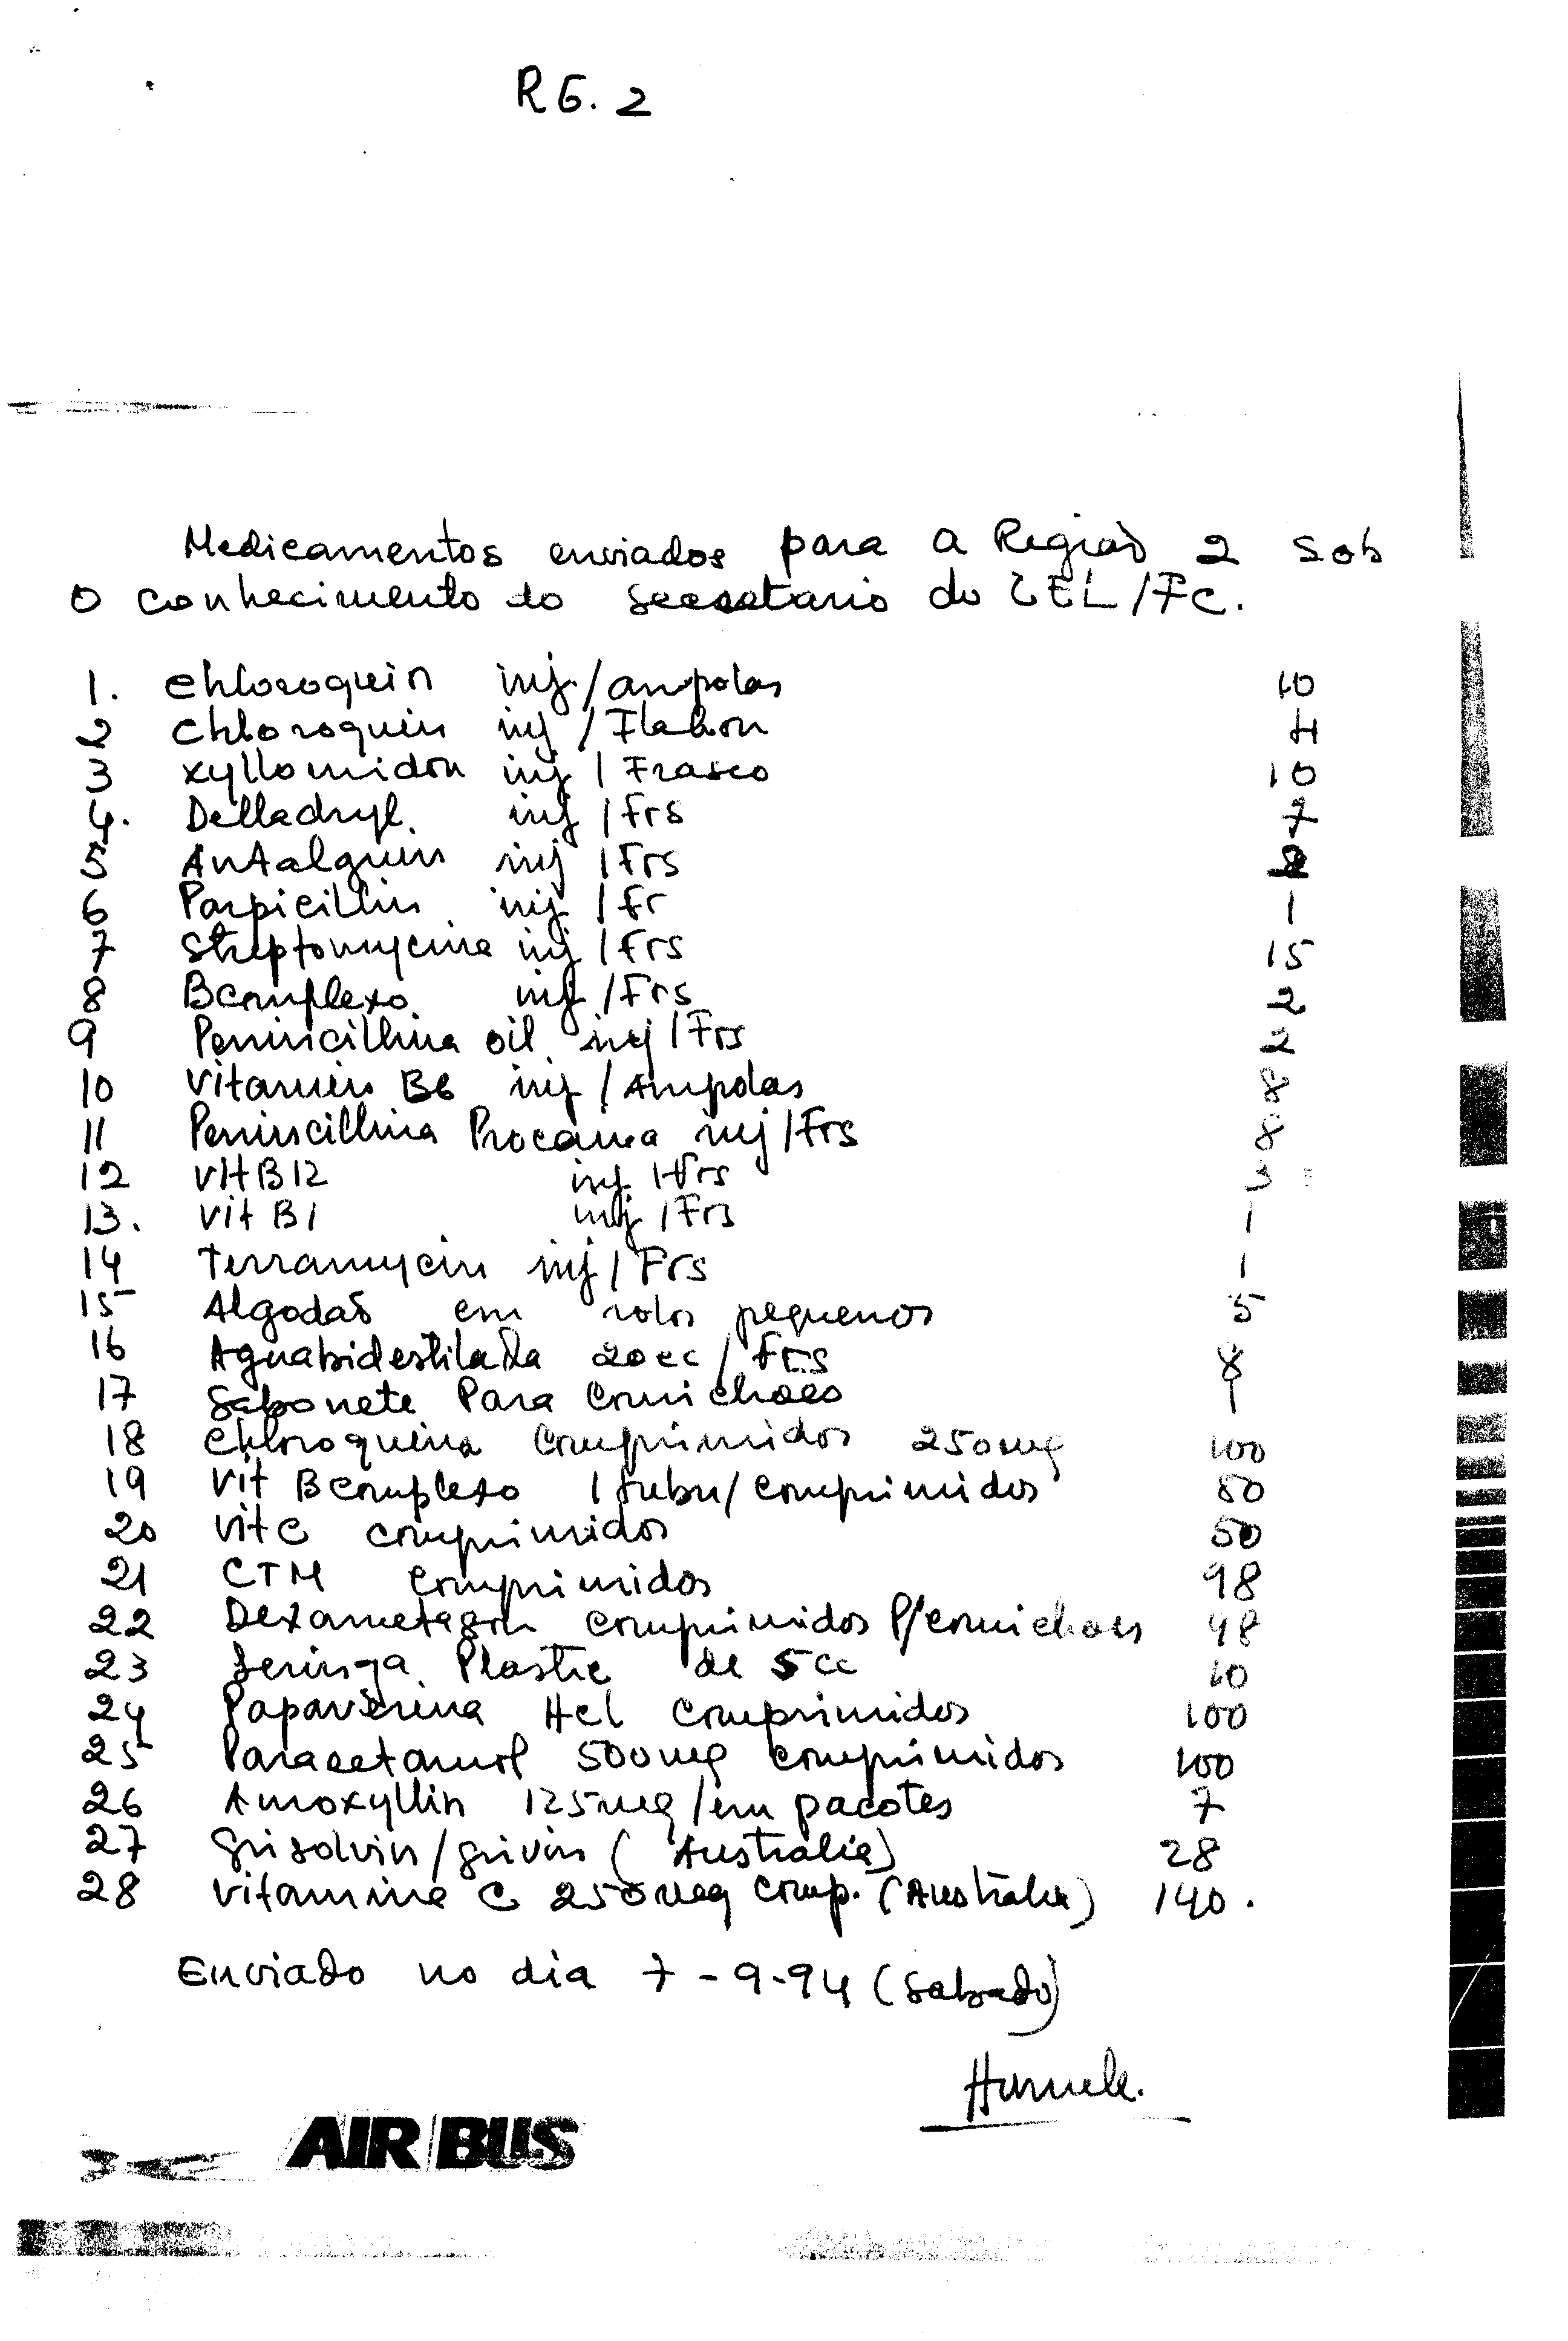 RG. 2
Medicamentos enviados para a Região 2 sob
o conhecimento do secretario do CEL/FC.
1. Chloroquin inj/ampolas 10
2 Chloroquin inj/Flabon 4
3 Xyllomidon inj/Frasco 10
4. Delladryl. inj/frs 7
5 Antalguin inj/Frs
6 Parpicillin inj/fr 1
7 Streptomycina inj/frs 15
8 Bcomplexo inj/Frs 2
9 Peniscillina oil inj/Frs 2
10 Vitamin B6 inj/Ampolas 8
11 Peniscillina Procaina inj/Frs 8
12 Vit B12 inj/Frs 3
13. Vit B1 inj/Frs 1
14 Terramycin inj/Frs 1
15 Algodaõ em rolos pequenos 5
16 Aguabidestilada 20cc/frs 8
17 Sabonete Para Comichoes 1
18 Chloroquina Comprimidos 250mg 100
19 Vit Bcomplexo 1 tubu/comprimidos 50
20 Vit C comprimidos 50
21 CTM comprimidos 98
22 Dexametason comprimidos P/comichoes 48
23 Seringa Plastic de 5cc 10
24 Papaverina Hcl comprimidos 100
25 Paracetamol 500mg comprimidos 100
26 Amoxyllin 125mg/em pacotes 7
27 Grisolvin/grivin (Australia) 28
28 Vitamine C 250mg comp. (Australia) 140.
Enviado no dia 7-9-94 (Sabado)
AIR BUS